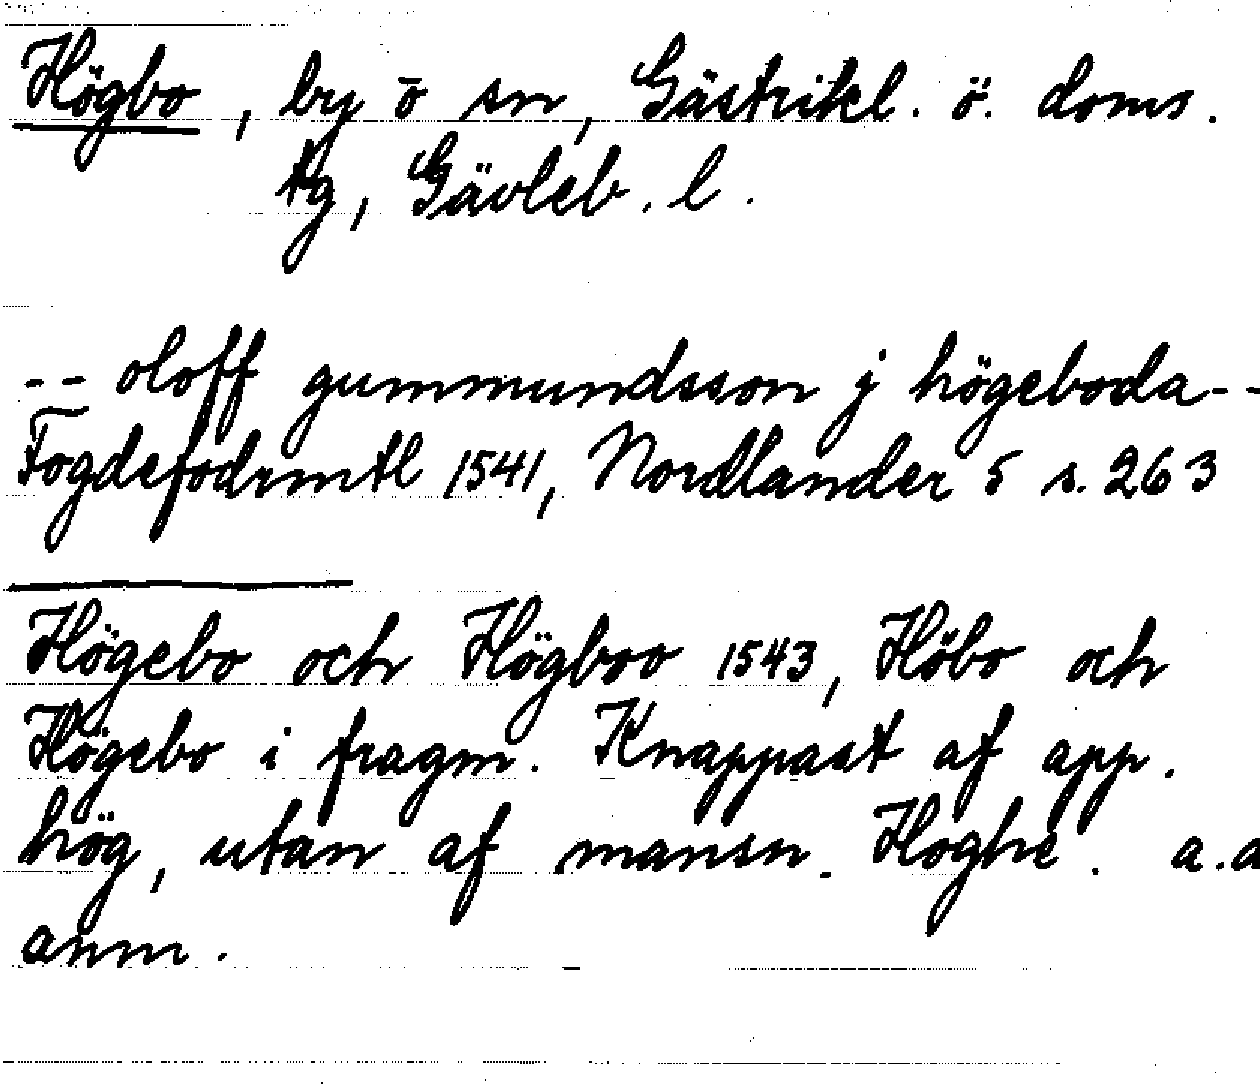 Högbo, by o sn, Gästrikl. ö. doms.
tg, Gävleb. l.
-- oloff gummundsson j högeboda--
Fogdefodrmtl 1541, Nordlander 5 s. 263
Högebo och Högboo 1543, Höbo och
Högebo i fragm. Knappast af app.
hög, utan af mansn. Hoghe. a.a
anm.